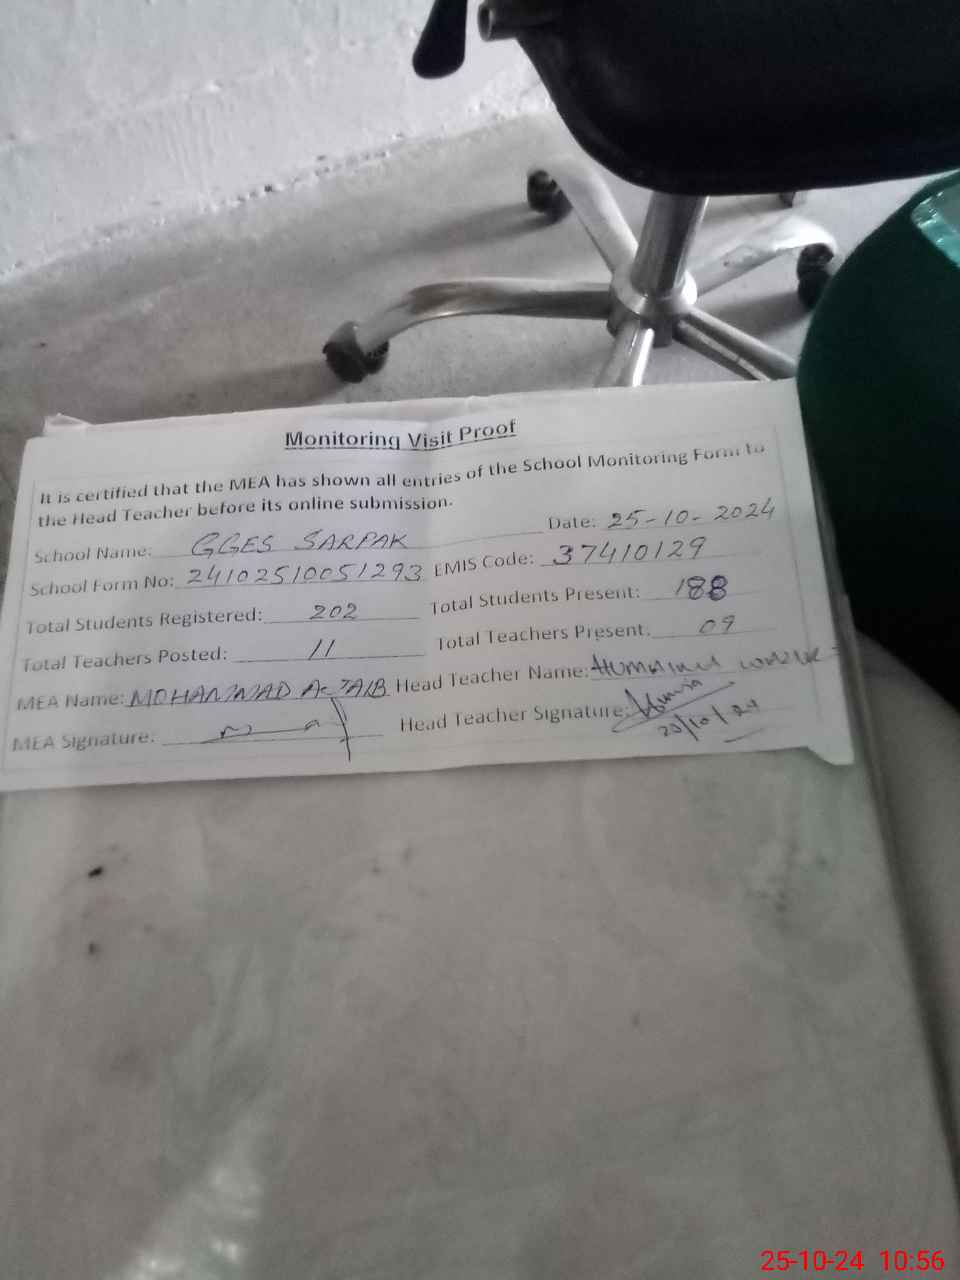 Monitoring Visit Proof
It is certified that the MEA has shown all entries of the School Monitoring Form to
the Head Teacher before its online submission.
Date: 25-10-2024
School Name: GGES SARPAK
School Form No: 24102510051293 EMIS Code: 37410129
Total Students Registered: 202 Total Students Present: 188
Total Teachers Posted: 11 Total Teachers Present: 09
MEA Name: MOHAMMAD Head Teacher Name:
MEA Signature: Head Teacher Signature:
25/10/24
25-10-24 10:56